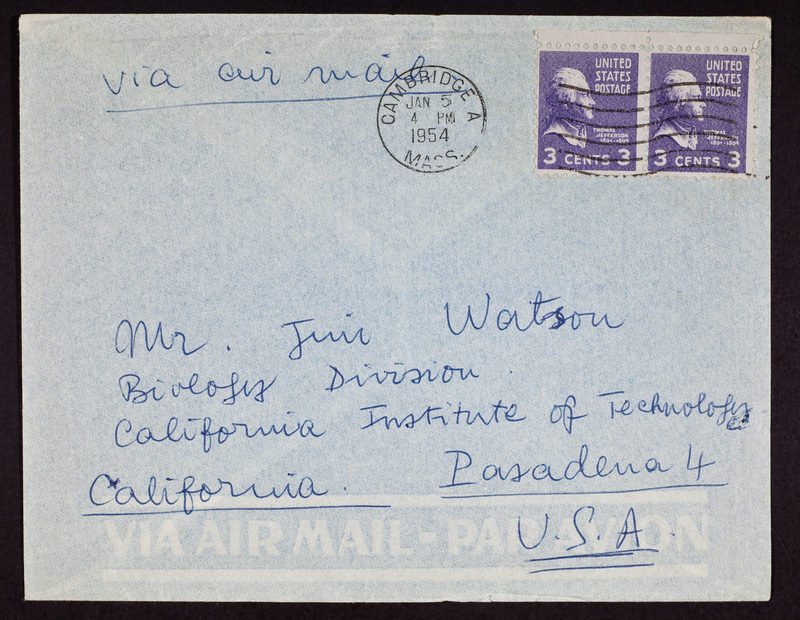 via air mail
CAMBRIDGE A
JAN 5
4 PM
1954
MASS.
UNITED
STATES
POSTAGE
THOMAS
JEFFERSON
1801-1809
3 CENTS 3
UNITED
STATES
POSTAGE
THOMAS
JEFFERSON
1801-1809
3 CENTS 3
Mr. Jim Watson
Biology Division.
California Institute of Technology
California. Pasadena 4
U.S.A.
VIA AIR MAIL-PAR AVION